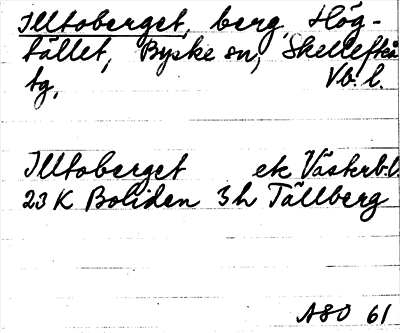 Illtoberget, berg, Hög-
tället, Byske sn, Skellefteå
tg, Vb. l.
Illtoberget ek Västerb.l.
23 K Boliden 3h Tällberg
ASO 61